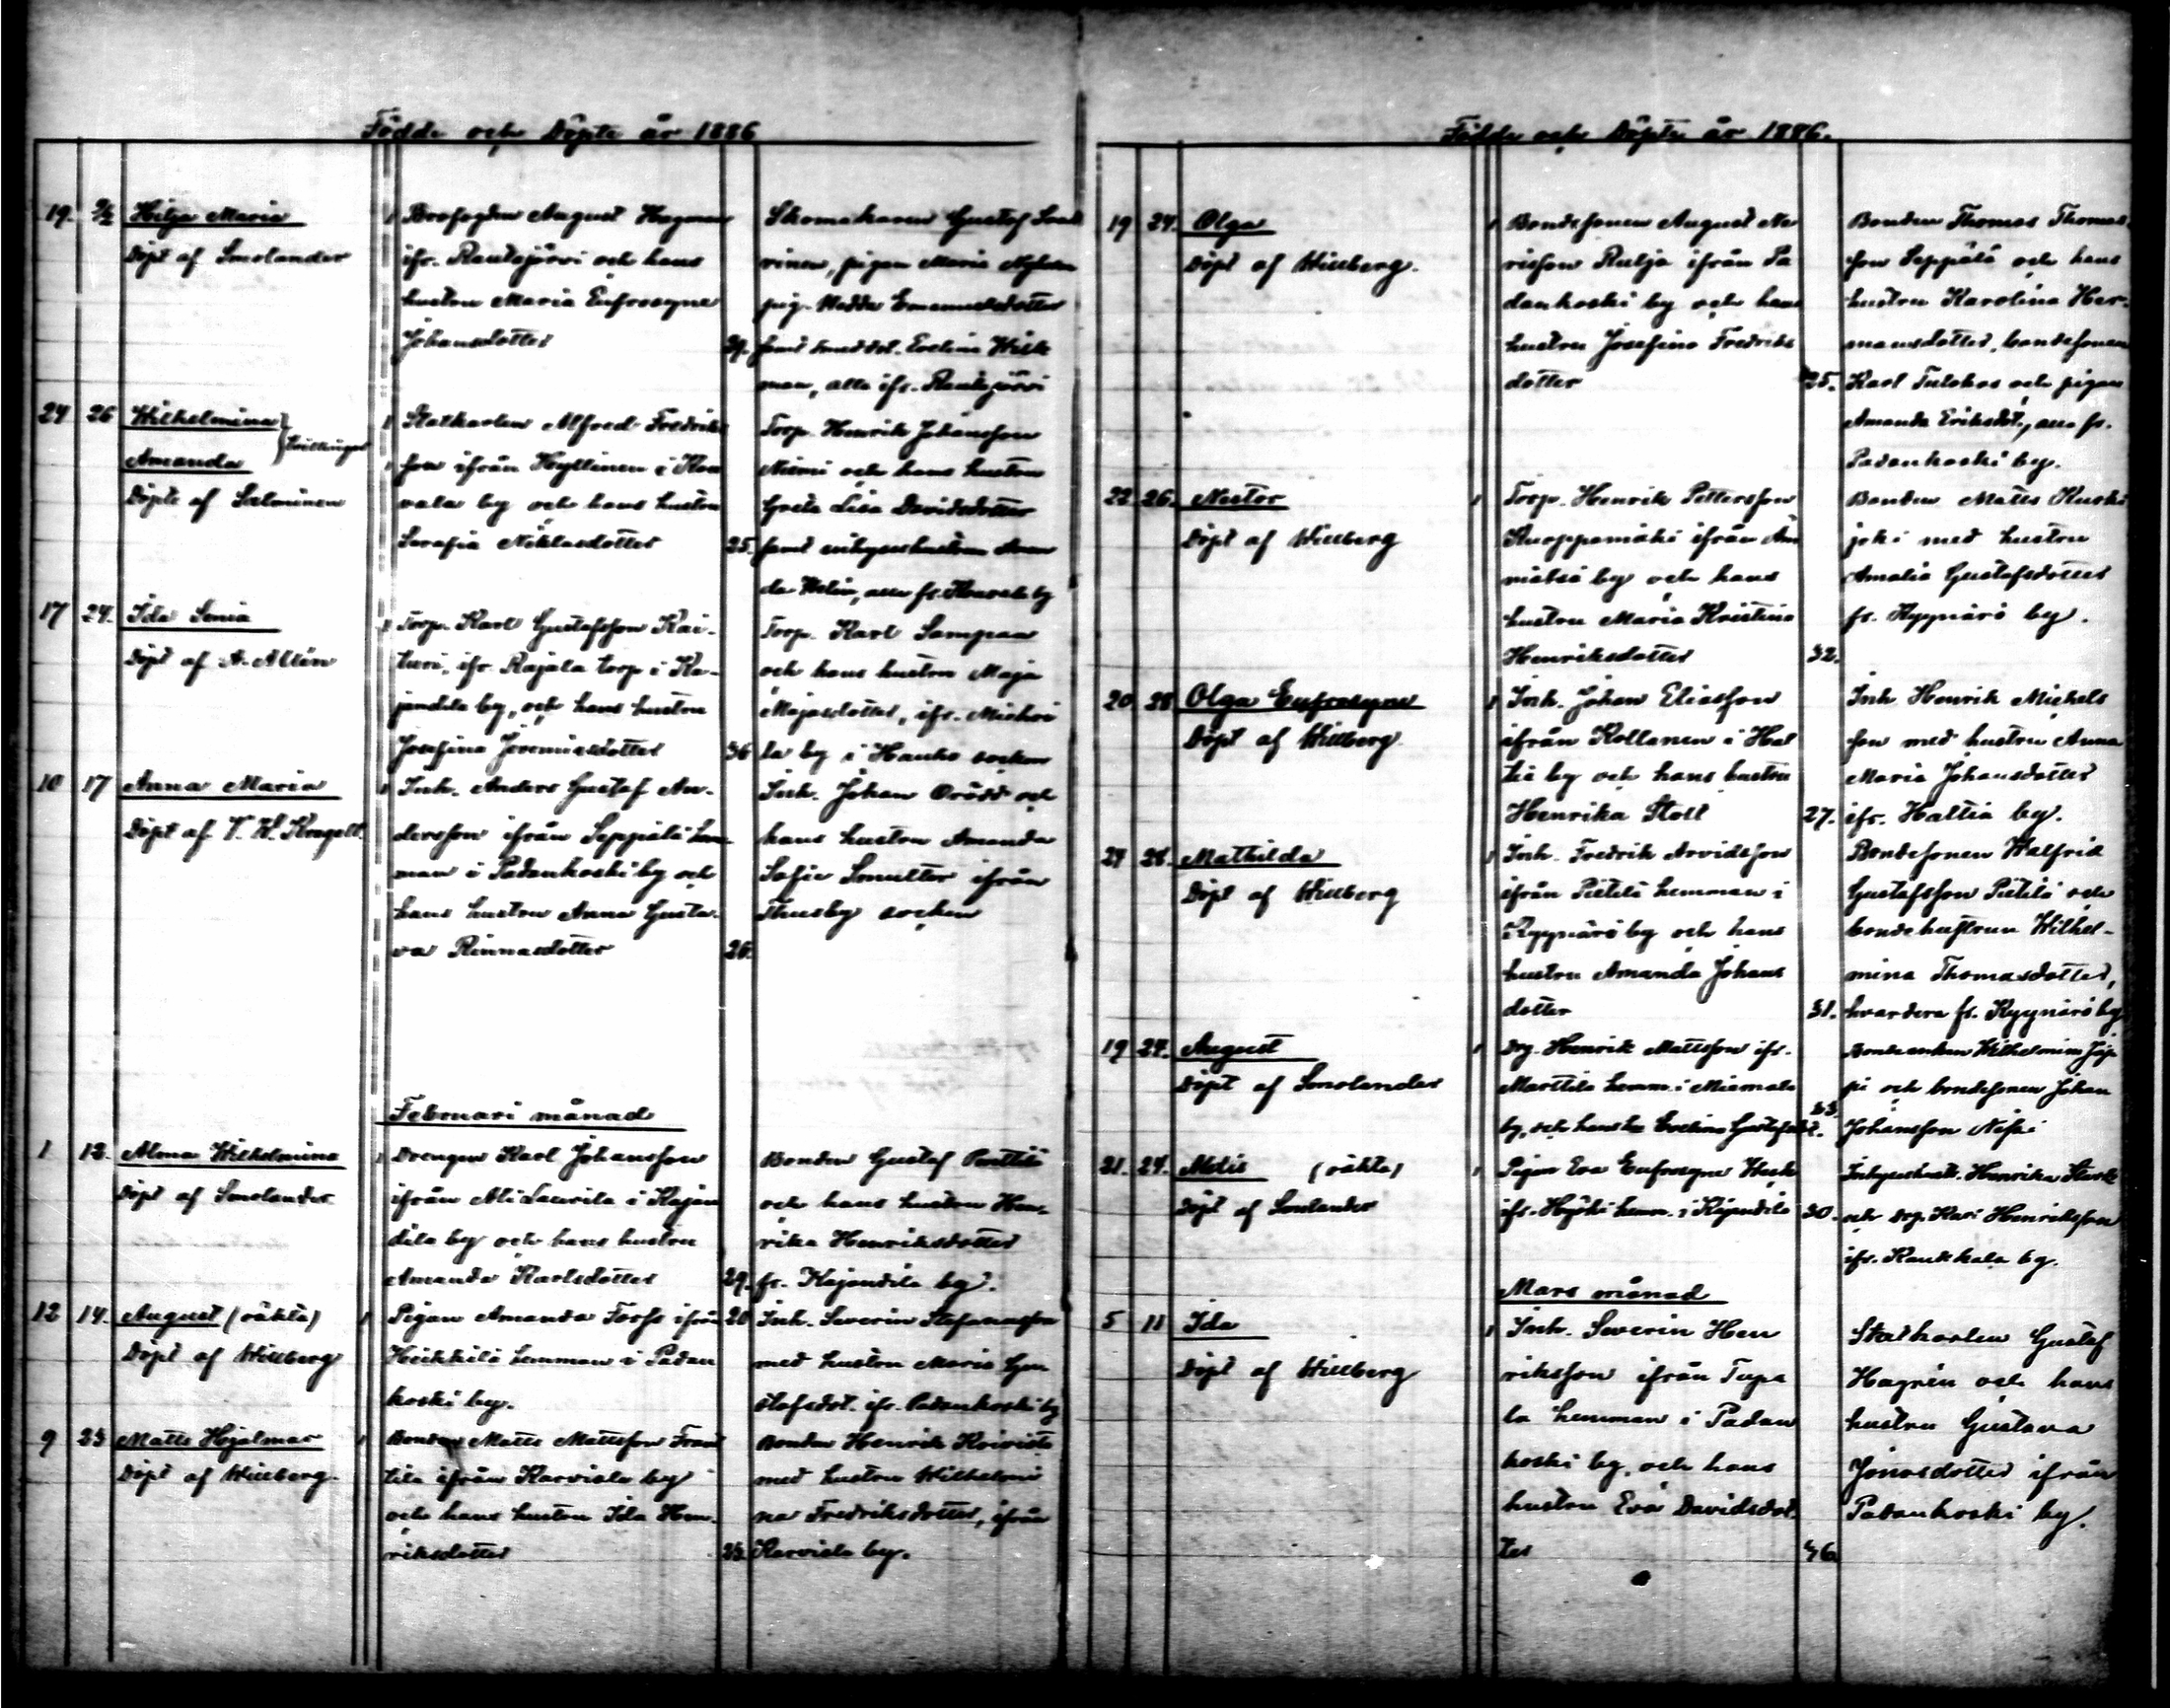 Födde och Döpte år 1886
19. 9/2 Hilja Maria
Döpt af Smolander
Brofogden August Hagman
ifr. Rautajärvi och hans
hustru Maria Eufrosyne
Johansdotter
29.
Skomakaren Gustaf
rinen, pigan Maria
pig. Hedda Emanuelsdotter
samt Evelina
man, alla ifr. Rautajärvi
24 26 Wilhelmina
Amanda
Döpte af Salminen
Statkarlen Alfred Fredriks
son ifrån Hyllinen i
vala by och hans hustru
Serafia Niklasdotter
25.
Torp. Henrik Johansson
Niemi och hans hustru
Greta Lisa Davidsdotter
samt inhyseshustrun
da alla fr. by
17 24. Ida Senia
Döpt af A. Allén
Torp. Karl Gustafsson Kai-
turi, ifr. Rajala torp i Ka-
jandila by, och hans hustru
Josefina Jeremiasdotter
36
Torp. Karl Sampaa
och hans hustru Maja
Majasdotter, ifr.
la by i Hauho socken
10 17 Anna Maria
Döpt af
Inh. Anders Gustaf An-
dersson ifrån Seppälä hem
man i Padankoski by och
hans hustru Anna Gusta-
va Rinnasdotter
26.
Inh. Johan och
hans hustru Amanda
Sofia ifrån
Thusby socken
Februari månad
1 12. Alma Wilhelmina
Döpt af Smolander
Drengen Karl Johansson
ifrån Ali Laurila i Kajan
dila by och hans hustru
Amanda Karlsdotter
29.
Bonden Gustaf Penttilä
och hans hustru Hen-
rika Henriksdotter
fr. Kajandila by.
12 14. August (oäkta)
Döpt af Willberg
Pigan Amanda Forss ifrån
Heikkilä hemman i Padan
koski by.
20
Inh. Severin Stefansson
med hustru Maria Gu-
stafsdot. ifr. Padankoski by
9 23 Matts Hjalmar
Döpt af Willberg.
Bonden Matts Mattsson
tila ifrån Karviala by
och hans hustru Ida Hen-
riksdotter
Bonden Henrik Koivisto
med hustru Wilhelmi
na Fredriksdotter, ifrån
Karviala by.
Födde och Döpte år 1886.
19 24. Olga
Döpt af Willberg.
Bondesonen August He
ricson Rulja ifrån Pa
dankoski by och hans
hustru Josefina Fredriks
dotter
25.
Bonden Thomas Thomas
son Seppälä och hans
hustru Karolina Her-
mansdotter, bondesonen
Karl Tulokas och pigan
Amanda Eriksdot., alla fr.
Padankoski by.
22 26. Nestor
Döpt af Willberg
Torp. Henrik Pettersson
Knoppamäki ifrån
mätsä by och hans
hustru Maria Kristina
Henriksdotter
32.
Bonden Matts
joki med hustru
Amalia Gustafsdotter
fr. Kyynärö by.
20 28 Olga Eufrosyne
Döpt af Willberg.
Inh. Johan Eliasson
ifrån Kollanen i Hat
tia by och hans hustru
Henrika Stoll
27.
Inh. Henrik Michels
son med hustru Anna
Maria Johansdotter
ifr. Hattia by.
24 28. Mathilda
Döpt af Willberg
Inh. Fredrik Arvidsson
ifrån Pietilä hemman i
Kyynärö by och hans
hustru Amanda Johans
dotter
31.
Bondesonen Walfrid
Gustafsson Pietilä och
bondehustrun Wilhel-
mina Thomasdotter,
hvardera fr. Kyynärö by
19 24. August
Döpt af Smolander
Drg. Henrik Mattsson ifr.
Marttila hemm. i
by, och hans h. Evelina Gustafsdot.
33.
Bondenkan Wilhelmina
pi och bondesonen Johan
Johansson
21. 24. (oäkta)
Döpt af Smolander
Pigan Eva Eufrosyne
ifr. hemm. i Kajandila
30.
Inhyseshust. Henrika
och drg. Karl Henriksson
ifr. Kaukkala by.
Mars månad
5 11 Ida
Döpt af Willberg
Inh. Severin Hen
riksson ifrån Tupa
la hemman i Padan
koski by, och hans
hustru Eva Davidsdot-
ter
36
Statkarlen Gustaf
Hagrén och hans
hustru Gustava
Jonasdotter ifrån
Padankoski by.